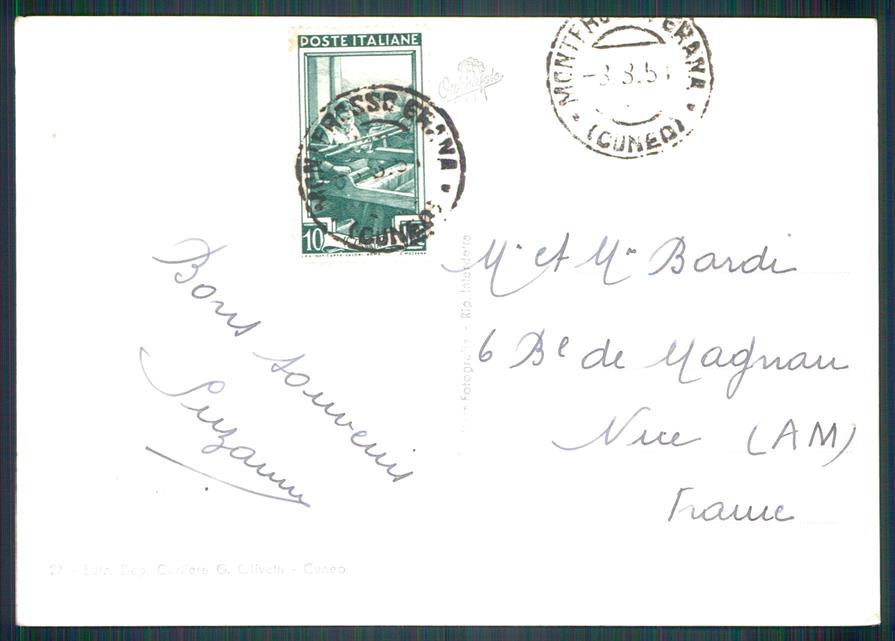 POSTE ITALIANE
10
MONTEROSSO GRANA
(CUNEO)
-3.8.5
(CUNEO)
Bons souvenirs
Suzanne
Mr et Mme Bardi
6 Bd de Magnan
Nice (AM)
France
Vera Fotografia - Rip. Interdetta
27 - Ediz. Dep. Cartiere G. Olivetti - Cuneo